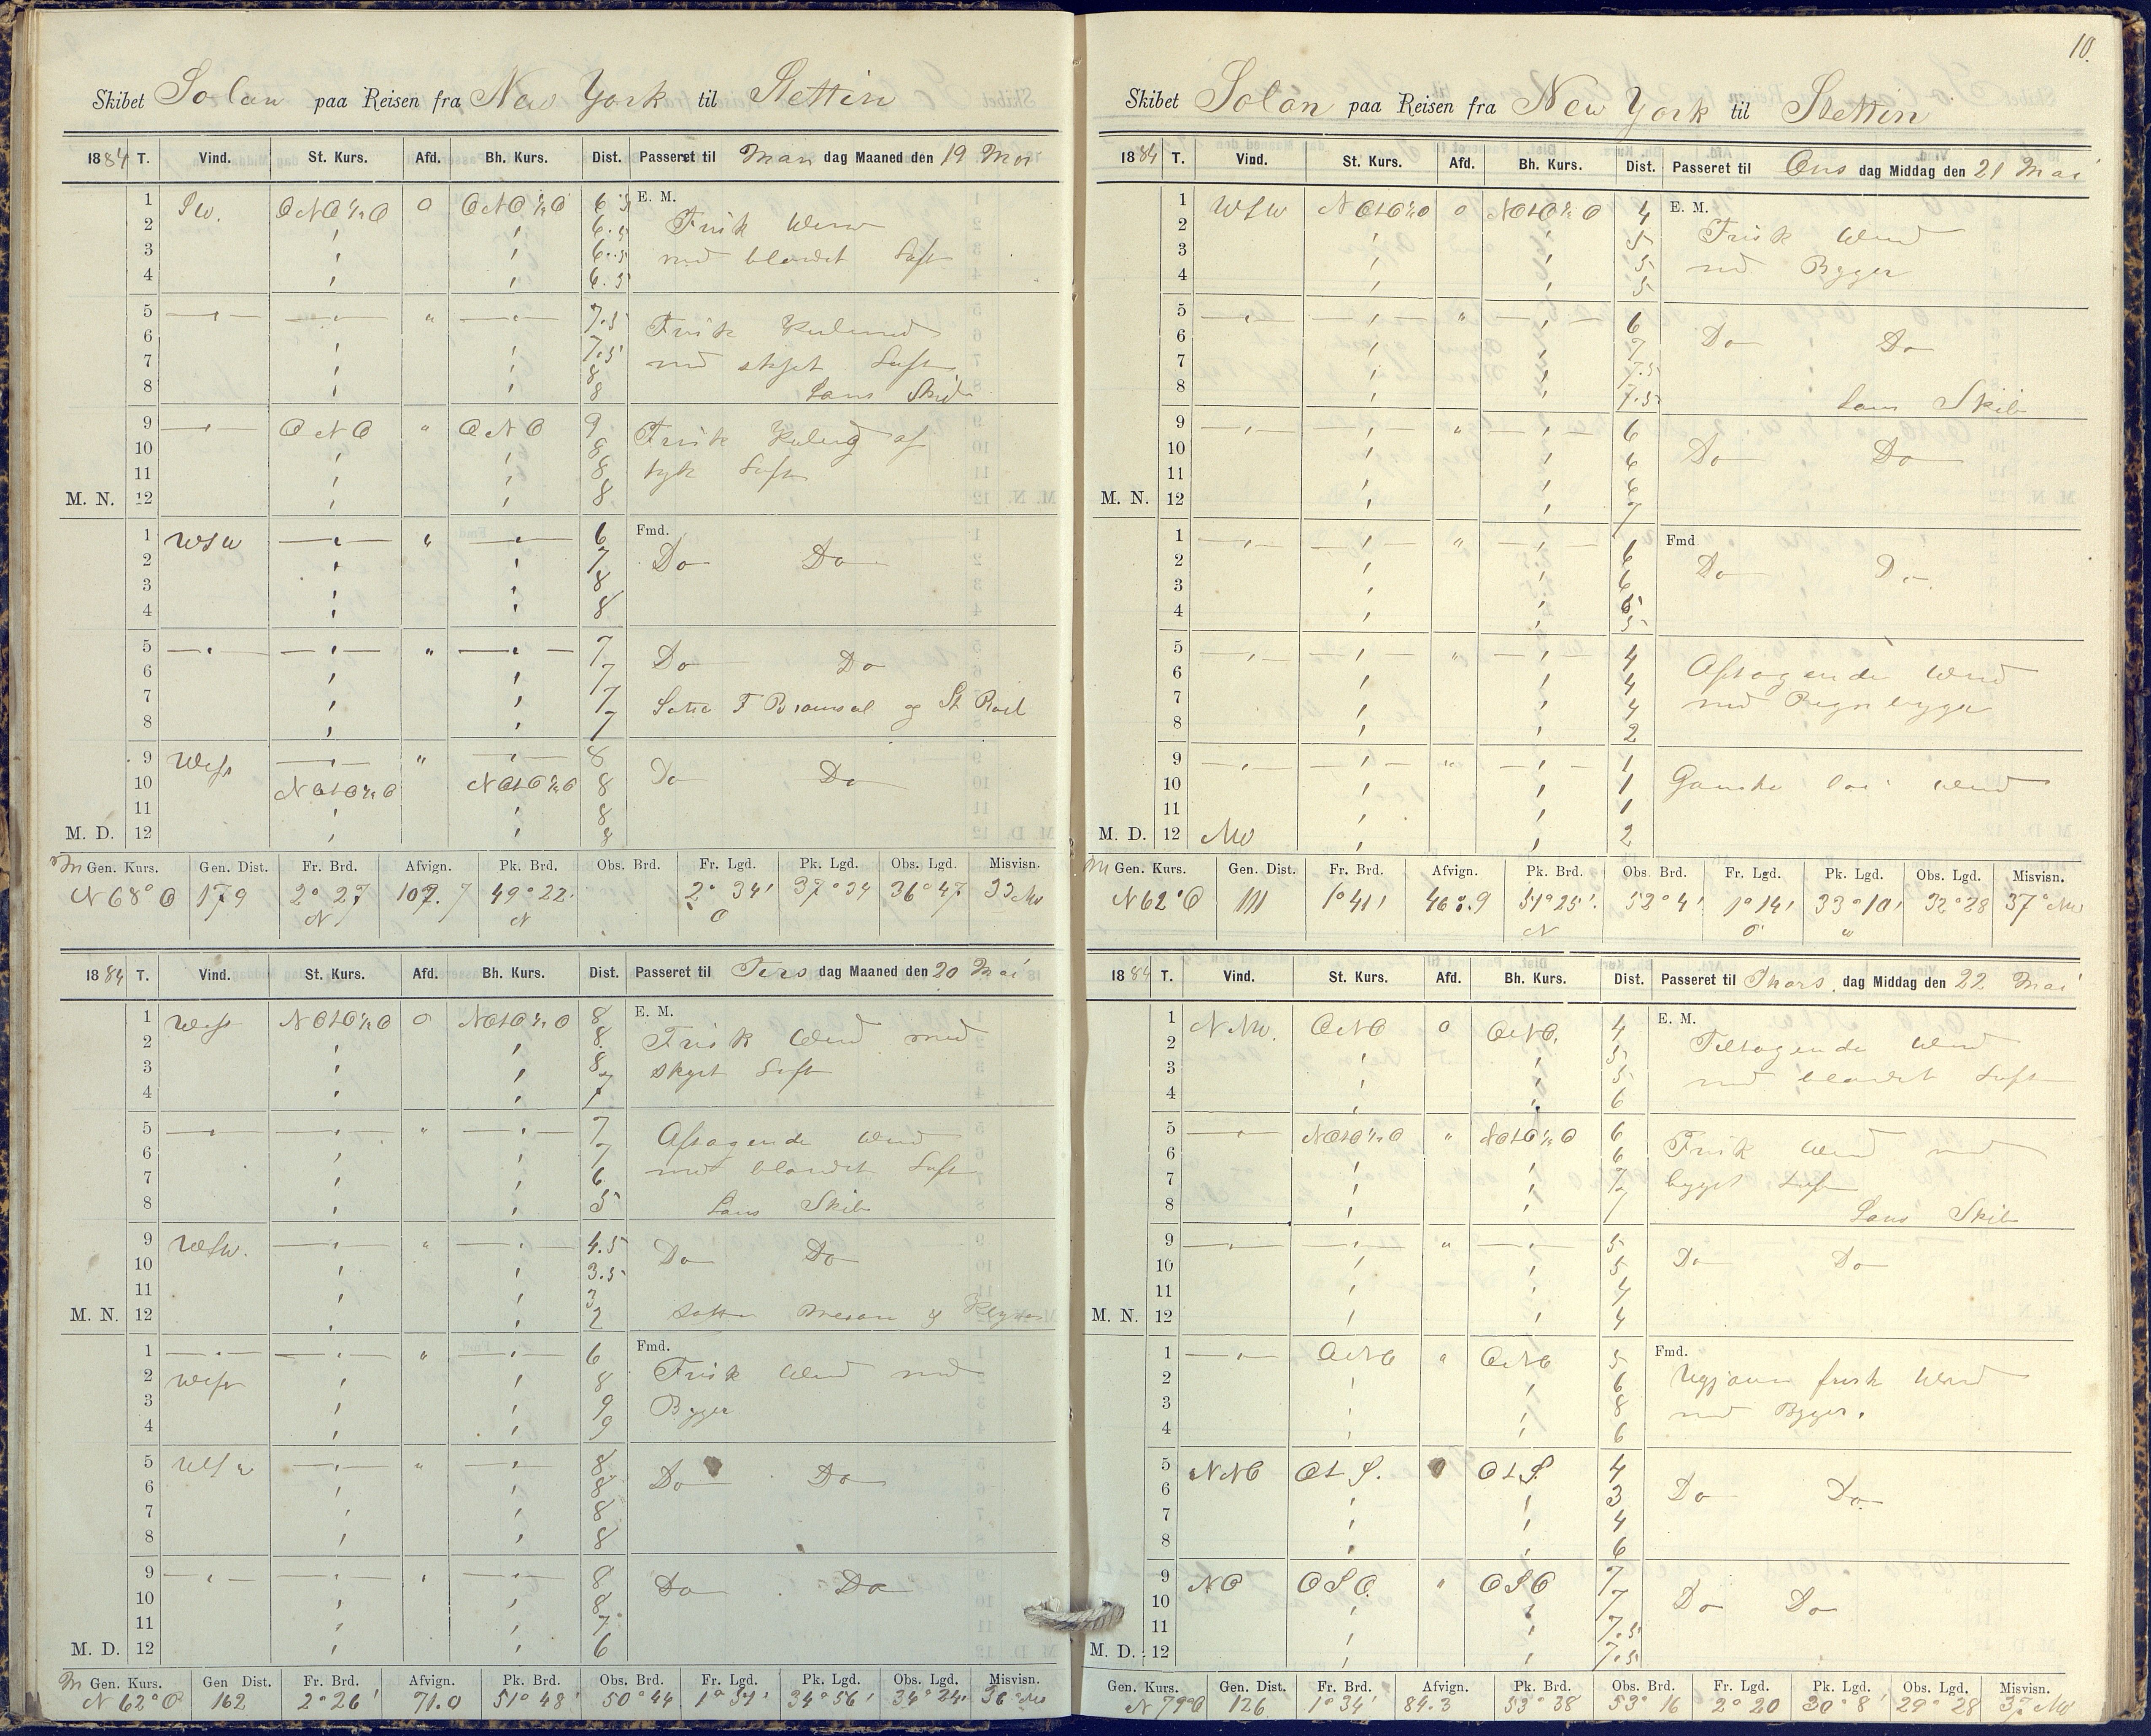 10.
Skibet Solan paa Reisen fra New York til Stettin
1884 T. Vind. St. Kurs. Afd. Bh. Kurs. Dist. Passeret til Man dag Maaned den 19 Mai
1 SW. ONO½O 0 ONO½O 6.5 E. M.
2 " " 6.5 Frisk Wind
3 " " 6.5 med blandet Luft
4 " " 6.5
5 — " — — " — " — " — 7.5 Frisk Kuling
6 " " 7.5 med skyet Luft
7 " " 8
8 " " 8 Lans Skib
9 — " — ONO " ONO 9 Frisk Kuling af
10 " " 8 tyk Luft
11 " " 8
M. N. 12 " " 8
1 WSW — " — " — " — 6 Fmd.
2 " " 7 Do Do
3 " " 8
4 " " 8
5 — " — — " — " — " — 7 Do Do
6 " " 7
7 " " 7 F og St
8 " " 7
9 West — " — " — " — 8
10 NOtO½O NOtO½O 8 Do Do
11 " " 8
M. D. 12 " " 8
M Gen. Kurs. Gen. Dist. Fr. Brd. Afvign. Pk. Brd. Obs. Brd. Fr. Lgd. Pk. Lgd. Obs. Lgd. Misvisn.
N 68° O 179 2° 27 107.7 49° 22. 2° 34' 37° 34 36° 47 33 NW
N N O
1884 T. Vind. St. Kurs. Afd. Bh. Kurs. Dist. Passeret til Tirs dag Maaned den 20 Mai
1 West NOtO½O 0 NOtO½O 8 E. M.
2 " " 8 Frisk Wind med
3 " " 8 skyet Luft
4 " " 7
5 — " — — " — " — " — 7 Aftagende Wind
6 " " 7 med blandet Luft
7 " " 6
8 " " 5 Lans Skib
9 WSW. — " — " — " — 4.5 Do Do
10 " " 3.5
11 " " 3
M. N. 12 " " 2 Mesan og Klyver
1 — " — — " — " — " — 6 Fmd.
2 West " " 8 Frisk Wind med
3 " " 9 Byger
4 " " 9
5 WSW — " — " — " — 8
6 " " 8 Do Do
7 " " 8
8 " " 8
9 — " — — " — " — " — 8 Do Do
10 " " 8
11 " " 7
M. D. 12 " " 6
M Gen. Kurs. Gen Dist. Fr. Brd. Afvign. Pk. Brd. Obs. Brd. Fr. Lgd. Pk. Lgd. Obs. Lgd. Misvisn.
N 62° O 162 2° 26' 71.0 51° 48' 50° 44 1° 51' 34° 56' 34° 24' 36° NW
Skibet Solan paa Reisen fra New York til Stettin
1884 T. Vind. St. Kurs. Afd. Bh. Kurs. Dist. Passeret til Ons dag Middag den 21 Mai
1 WSW NOtO½O 0 NOtO½O 4 E. M.
2 " " 5 Frisk Wind
3 " " 5 med Byger
4 " " 5
5 — " — — " — " — " — 6
6 " " 7 Do Do
7 " " 7.5
8 " " 7.5 Lans Skib
9 — " — — " — " — " — 6
10 " " 6 Do Do
11 " " 6
M. N. 12 " " 7
1 — " — — " — " — " — 6 Fmd
2 " " 6 Do Do
3 " " 6
4 " " 5
5 — " — — " — " — " — 4 Aftagende Wind
6 " " 4 med Regnbyger
7 " " 4
8 " " 2
9 — " — — " — " — " — 1
10 " " 1 Ganske Wind
11 " " 1
M. D. 12 NW " " 2
M Gen. Kurs. Gen. Dist. Fr. Brd. Afvign. Pk. Brd. Obs. Brd. Fr. Lgd. Pk. Lgd. Obs. Lgd. Misvisn.
N 62° O 111 1° 41' 46.9 51° 25'. 52° 4' 1° 14' 33° 10' 32° 28 37° NW
N O "
1884 T. Vind. St. Kurs. Afd. Bh. Kurs. Dist. Passeret til Thors. dag Middag den 22 Mai
1 NNW. ONO 0 ONO. 4 E. M.
2 " " 5 Tiltagende Wind
3 " " 5 med blandet Luft
4 " " 6
5 — " — NOtO½O " NOtO½O 6
6 " " 6 Frisk Wind med
7 " " 7 byget Luft
8 " " 7 Lans Skib
9 — " — — " — " — " — 5
10 " " 5 Do Do
11 " " 4
M. N. 12 " " 4
1 — " — ONO " ONO 5 Fmd.
2 " " 6 Ugjævn frisk Wind
3 " " 8 med Byger.
4 " " 6
5 NNO OtS. " OtS. 4
6 " " 3 Do Do
7 " " 4
8 " " 6
9 NO OSO. " OSO 7
10 " " 7 Do Do
11 " " 7.5
M. D. 12 " " 7.5
Gen. Kurs. Gen. Dist. Fr. Brd. Afvign. Pk. Brd. Obs. Brd. Fr. Lgd. Pk. Lgd. Obs. Lgd. Misvisn.
N 79° O 126 1° 34' 84.3 53° 38 53° 16 2° 20 30° 8' 29° 28 37 NW